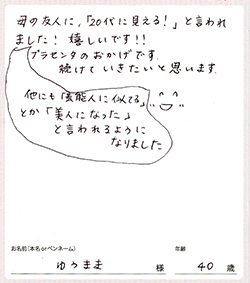 母の友人に,「20代に見える!」と言われ
ました! 嬉しいです!!
プラセンタのおかげです.
続けていきたいと思います.
他にも「芸能人に似てる」
とか「美人になった」
と言われるように
なりました
お名前(本名orペンネーム)
年齢
ゆうまま 様
40 歳